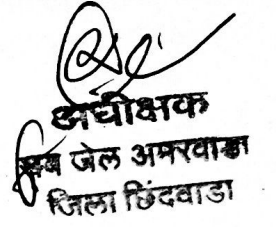 अधीक्षक
सब जेल अमरवाडा
जिला छिंदवाडा